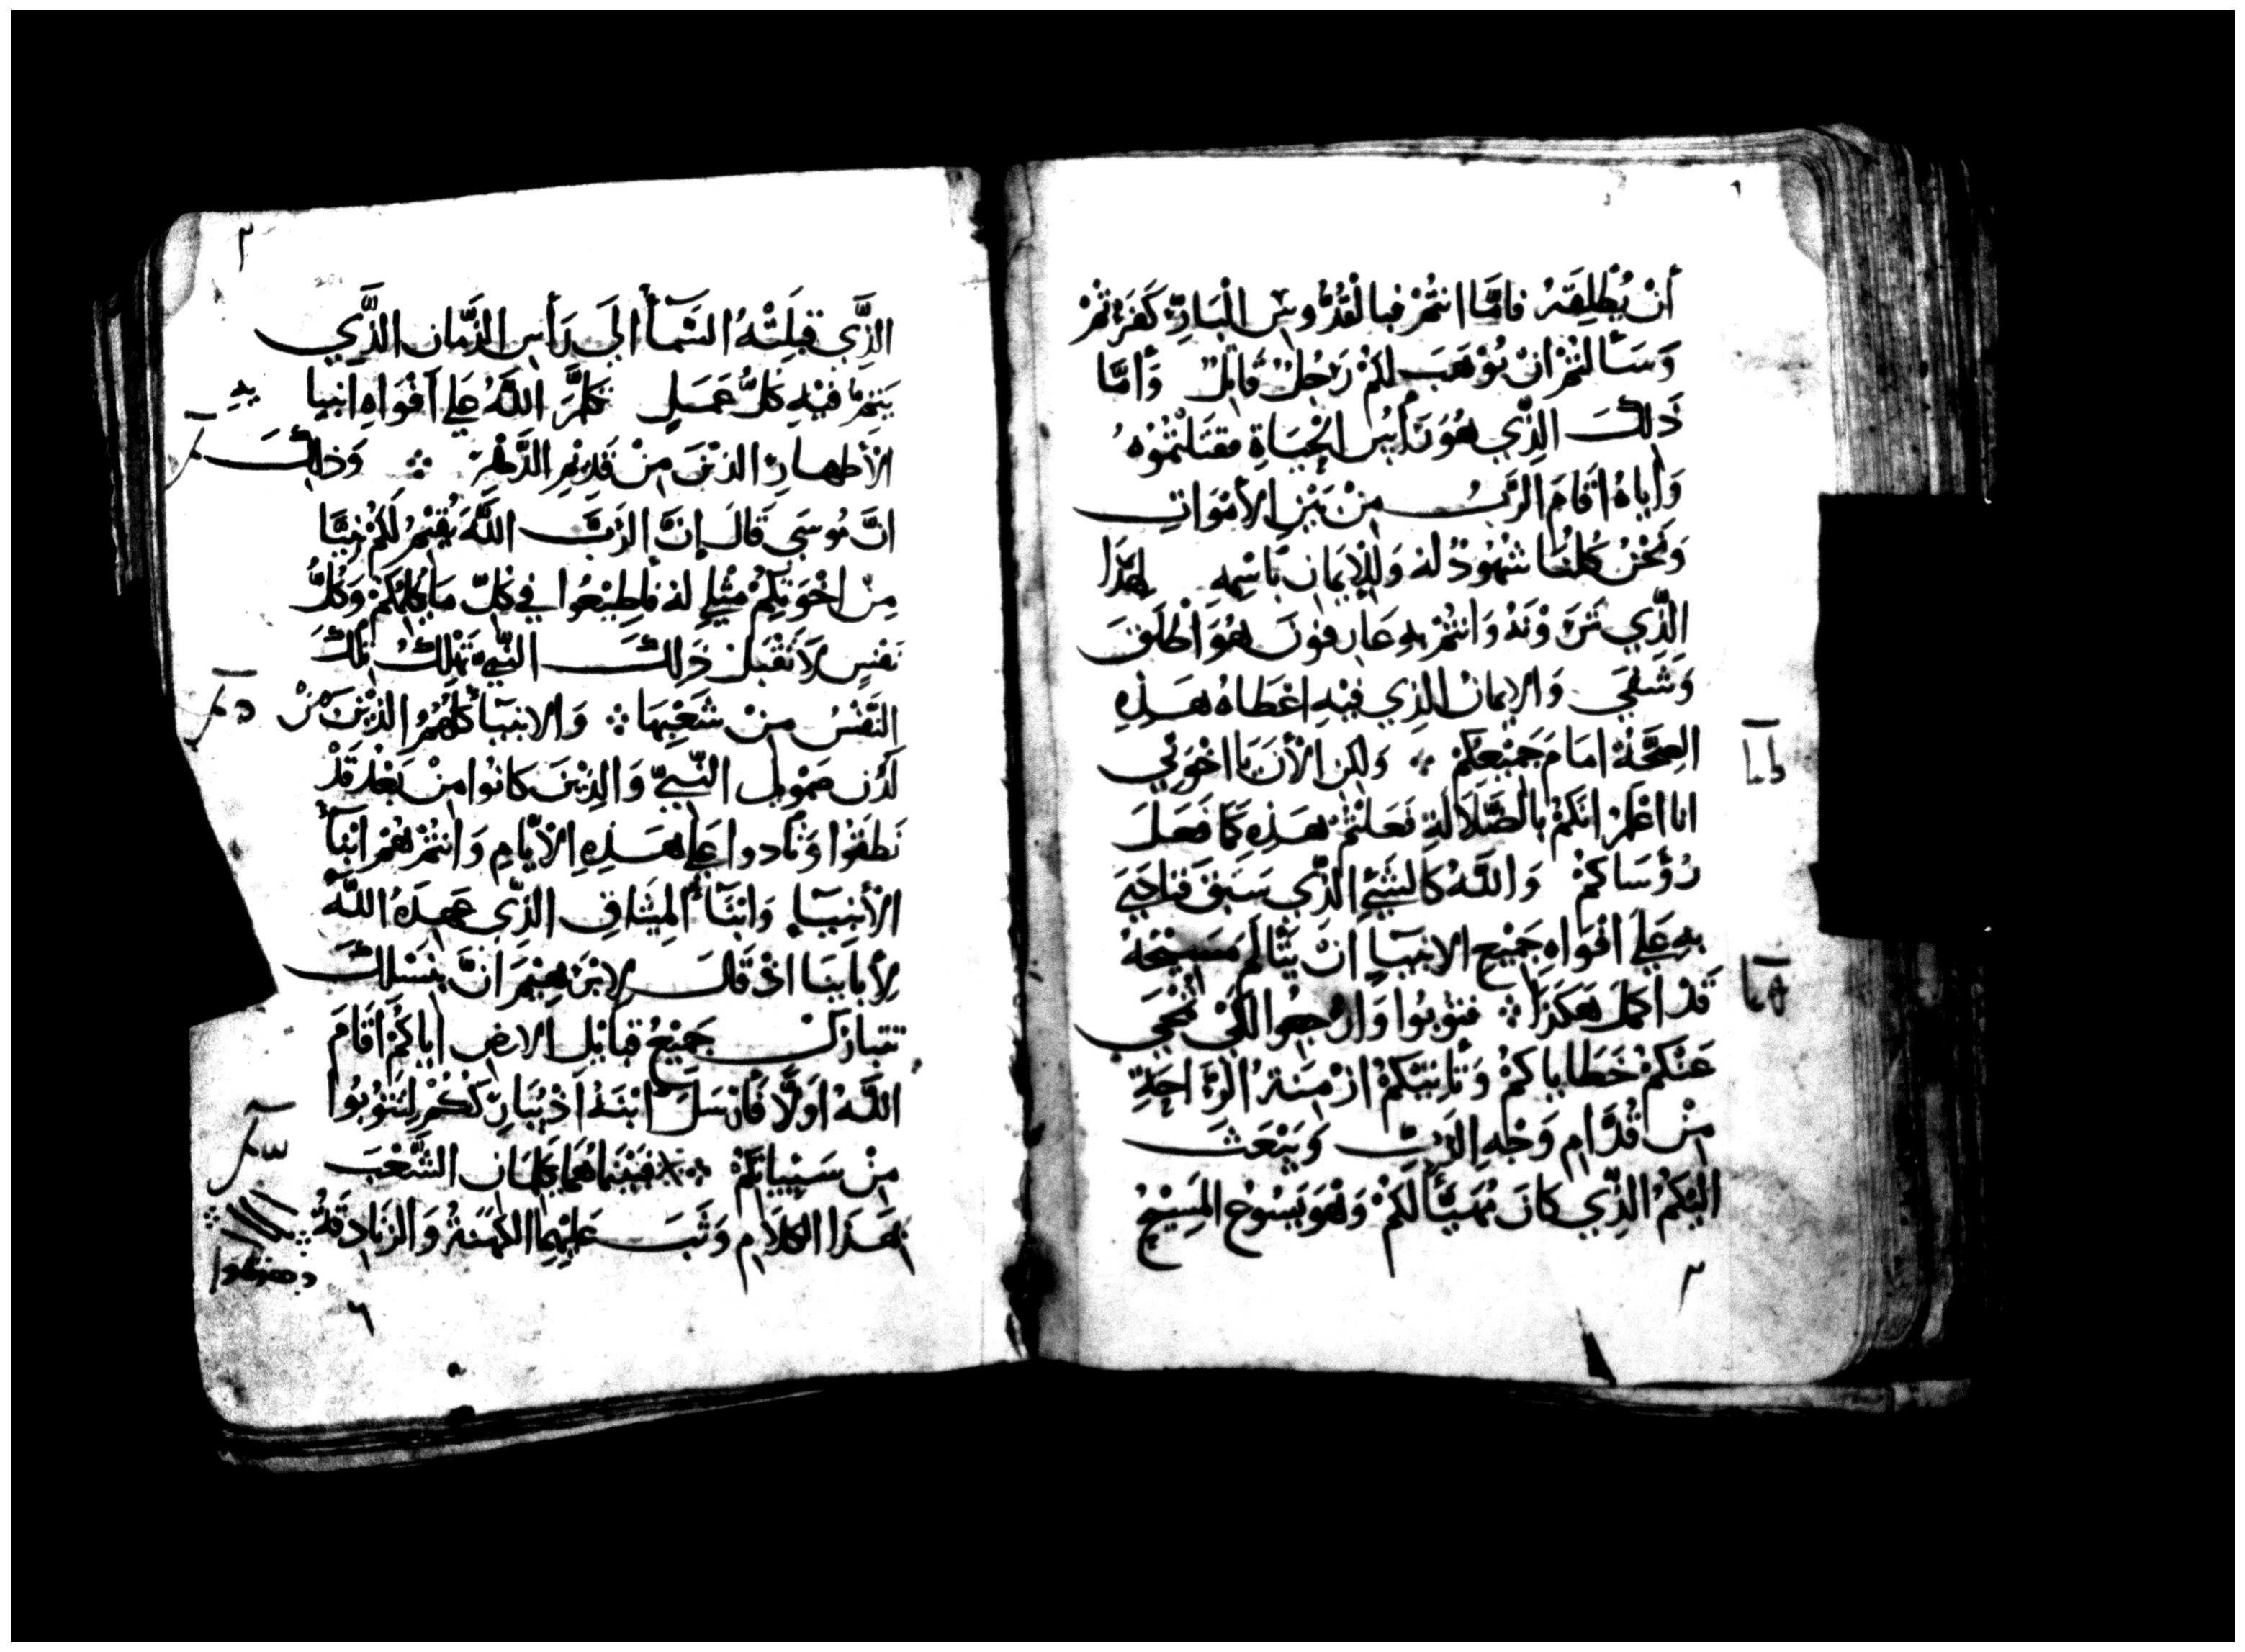 أَنْ يُطْلِقَهُ فامَّا انتُمْ فبالْقُدُّوسِ الْبَارِّ كَفَرْتمْ
وَسَالتُمْ انْ يُوْهَبَ لكمْ رَجُلٌ قَاتِلٌ وَأمَّا
ذَلكَ الذِّي هُوَ رَأسُ الحْيَاةِ فقتَلْتُمُوْهُ
وَاياهُ اقَامَ الرَّبُّ مِنْ بَيْنِ الأمْوَاتِ
وَنَحْنُ كلنُا شهُوْدٌ لهُ وَللإيمَان باسْمِهِ لهَذَا
الذِّي تَرَوْنهُ وَانتُمْ بهِ عَارفوْنَ هُوَ اطْلَقَ
وَشفَى وَالايمانُ الذِي فيْهِ اعْطَاهُ هَذِهِ
الصِّحَّةُ امَامَ جَميْعكُمْ ⁘ وَلكِن الأنَ يَا اخْوَتي
انا اعْلَمُ انكمْ بالضَّلَالَةِ فعَلتمْ هَذِهِ كمَا فَعَلَ
رُؤَسَاكمُ وَاللَّهُ كالشَيْءِ الذِّي سَبَقَ فنادَى
بهِ عَلَى افْوَاهِ جَميْع الانبيَاءِ انْ يَتَأَلمَ مَسِيْحَهُ
قَدْ اكمَلَ هَكَذَا ⁘ فتوْبُوا وَارْجعُوا لكَيْ تُمْحَى
عَنكمْ خَطاياكمْ وَتأتِيَكُمْ ازْمِنَة الرَّاحَةِ
مِنْ قُدَّامِ وَجْهِ الرَّبِّ وَيبْعَث
اليْكمُ الذِّي كانَ مُهيَّأ لكمْ وَهُوَ يَسُوْع المَسِيْحُ
٢
٢
الذِّي قبلَتْهُ السَّمَأ الىَ رَأسِ الزَّمان الذَّي
يَتِمُّ فيْهِ كلُّ عَمَلٍ تكلمَّ اللَّهُ عَلى اَفْوَاهِ انبيا
يهِ
الأطهارِ الذيْنَ مِنْ قَدِيْمِ الدَّهْرِ ⁘ وَذلكَ
انَّ مُوسَى قَالَ إنَّ الرَّبَّ اللَّهَ يُقيْمُ لَكمْ نبيَّا
مِنْ اخْوَتِكمْ مثْلي لهُ فأطِيْعُوا في كلّ مَا يُكلمكُمْ وَكلُّ
نفسٍ لَا تقْبَلُ ذَلكَ النَّبيَّ تهْلِكُ تلكَ
النَّفْسُ مِنْ شعْبِهَا ⁘ وَالانبيَأ كلهُمُ الذِّيْنَ مِنْ
لَدُن صَمْويل النَّبيِّ وَالذِيْنَ كانُوا مِنْ بَعْدُ قَدْ
نَطَقُوا وَنادوا عَلى هَذِهِ الأيَّامِ وَانتُمْ هُمْ ابْنأ
الأنبيَاءِ وَابْنَأ المِيْثاقِ الذِّي عَهِدَهُ اللَّهُ
لِأبايَنا اذْ قالَ لإبْرَهِيْمَ انَّ بنَسْلكَ
تتباركُ جَميْعُ قبايْل الارضِ اياكُمْ اقَامَ
اللَّهُ اوَّلًا فَارْسَلَ ابْنَهُ اذْ يُبَاركُكُمْ لِتتوُبُوا
مِنْ سَيِّياتكُمْ ⁘ فبَيْنمَا هُمَا يكلمَان الشَّعْبَ
بهَذا الكلَامِ وَثَبَ عَليْهِمَا الكهَنةُ وَالزَّنادقةُ
٦